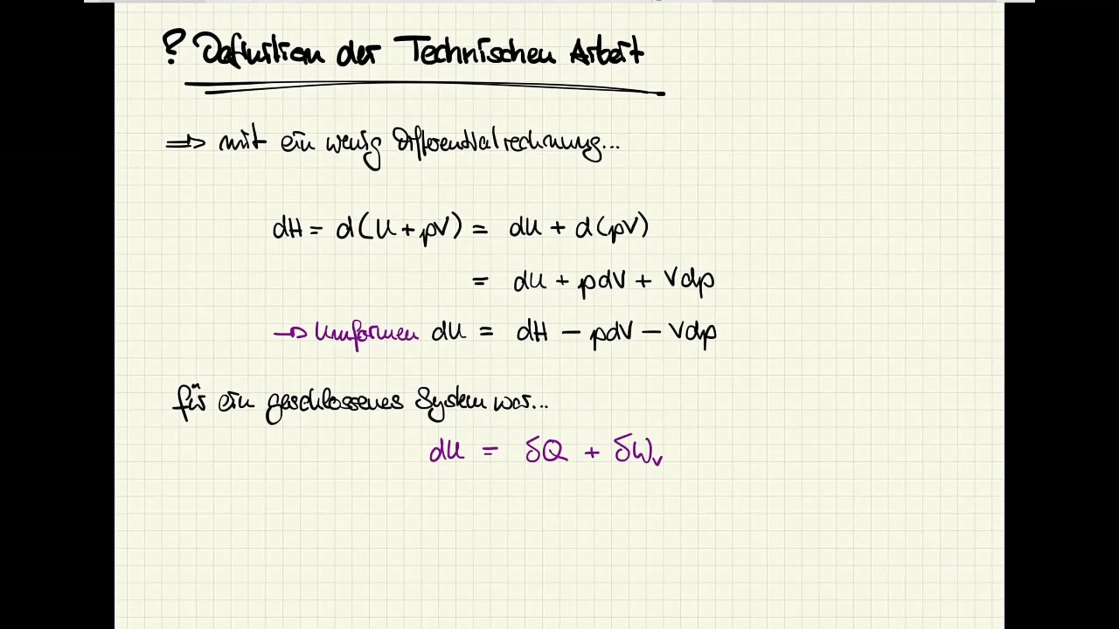 ? Definition der Technischen Arbeit
⇒ mit ein wenig Differentialrechnung...
dH = d(U + pV) = dU + d(pV)
= dU + pdV + Vdp
→ Umformen dU = dH - pdV - Vdp
für ein geschlossenes System war...
dU = δQ + δWv